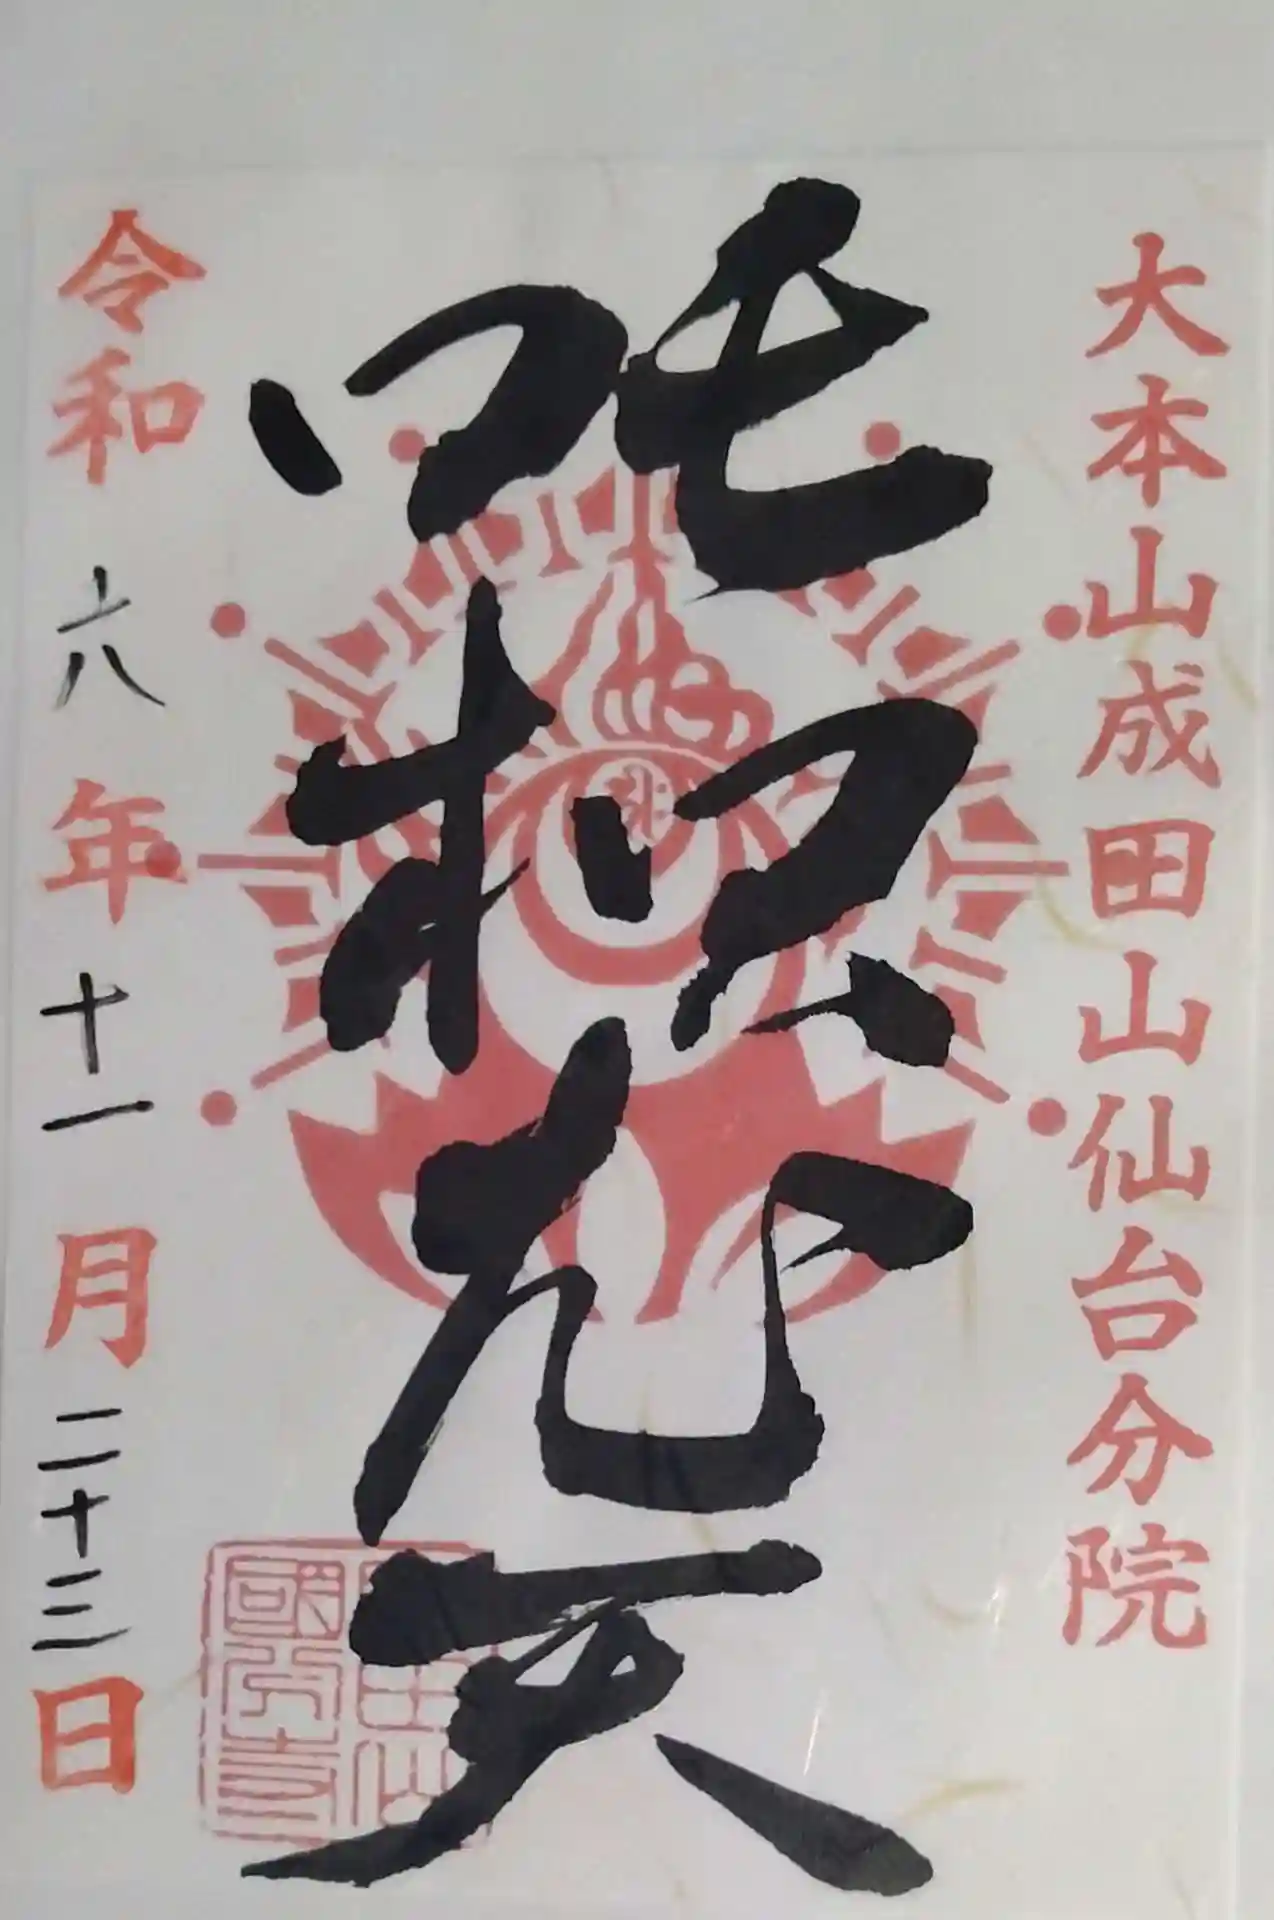 大本山成田山仙台分院
吒枳尼天
令和六年十一月二十三日